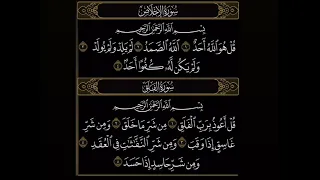 سُورَةُ الإِخْلَاصِ
بِسْمِ اللَّهِ الرَّحْمَٰنِ الرَّحِيمِ
قُلْ هُوَ اللَّهُ أَحَدٌ ١ اللَّهُ الصَّمَدُ ٢ لَمْ يَلِدْ وَلَمْ يُولَدْ ٣
وَلَمْ يَكُن لَّهُ كُفُوًا أَحَدٌ ٤
سُورَةُ الفَلَقِ
بِسْمِ اللَّهِ الرَّحْمَٰنِ الرَّحِيمِ
قُلْ أَعُوذُ بِرَبِّ الْفَلَقِ ١ مِن شَرِّ مَا خَلَقَ ٢ وَمِن شَرِّ
غَاسِقٍ إِذَا وَقَبَ ٣ وَمِن شَرِّ النَّفَّاثَاتِ فِي الْعُقَدِ ٤
وَمِن شَرِّ حَاسِدٍ إِذَا حَسَدَ ٥